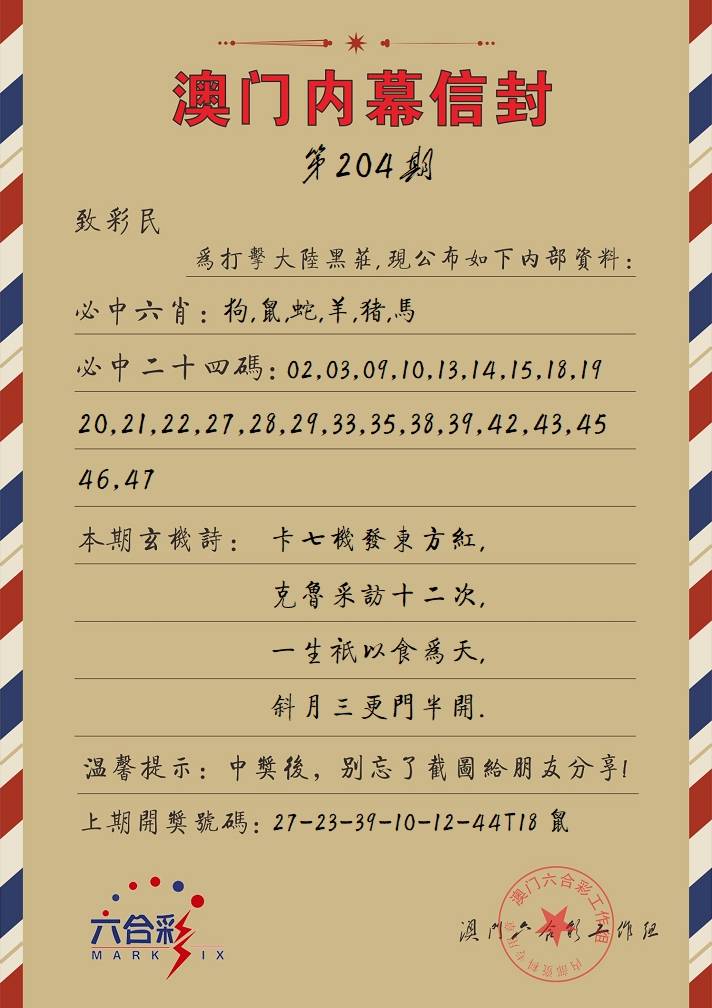 澳门内幕信封
第204期
致彩民
爲打擊大陸黑莊,現公布如下內部資料:
必中六肖:狗,鼠,蛇,羊,猪,馬
必中二十四碼:02,03,09,10,13,14,15,18,19
20,21,22,27,28,29,33,35,38,39,42,43,45
46,47
本期玄機詩: 卡七機發東方紅,
克魯采訪十二次,
一生祇以食爲天,
斜月三更門半開.
温馨提示:中獎後,别忘了截圖給朋友分享!
上期開獎號碼:27-23-39-10-12-44T18 鼠
六合彩
MARK SIX
澳门六合彩工作组
内部资料专用章
澳门六合彩工作组